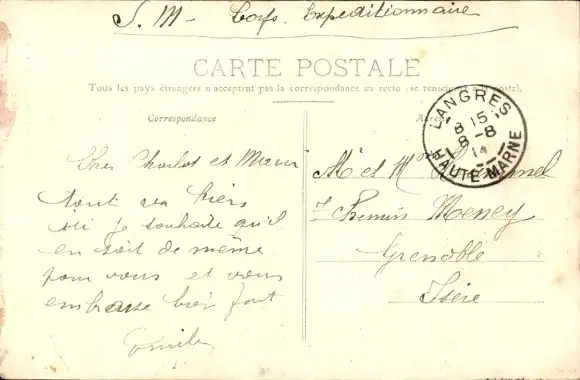 S. M - Corps. Expéditionnaire
CARTE POSTALE
Tous les pays étrangers n'acceptent pas la correspondance au recto (se renseigner à la poste).
Correspondance
Adresse
Cher Charlot et
tout va bien
ici je souhaite qu'il
en soit de même
pour vous et vous
embrasse bien fort
Emile
LANGRES
8 15
8 -8
14
HAUTE MARNE
Mr et Mme
7 Chemin Meney
Grenoble
Isère